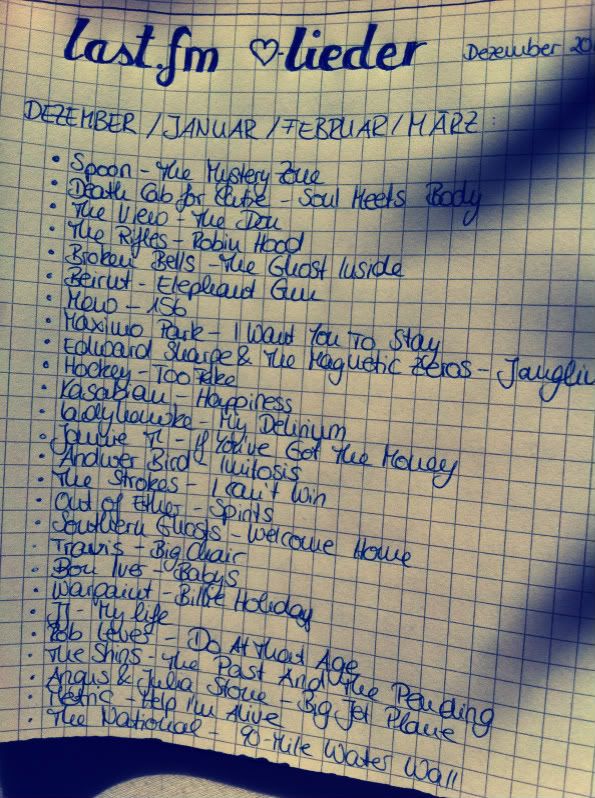 last.fm ♡-lieder Dezember 20
DEZEMBER / JANUAR / FEBRUAR / MÄRZ :
• Spoon - The Mystery Zone
• Death Cab for Cutie - Soul Meets Body
• The View - The Don
• The Rifles - Robin Hood
• Broken Bells - The Ghost Inside
• Beirut - Elephant Gun
• Mew - 156
• Maximo Park - I Want You To Stay
• Edward Sharpe & The Magnetic Zeros - Janglin
• Hockey - Too Fake
• Kasabian - Happiness
• Ladyhawke - My Delirium
• Jamie T. - If You've Got The Money
• Andwer Bird - Imitosis
• The Strokes - I can't win
• Out of Ether - Spirits
• Southern Ghosts - Welcome Home
• Travis - Big Chair
• Bon Iver - Babys
• Warpaint - Billie Holiday
• JJ - My life
• - Do At That Age
• The Shins - The Past And The Pending
• Angus & Julia Stone - Big Jet Plane
• Metric - Help I'm Alive
• The National - 90-Mile Water Wall